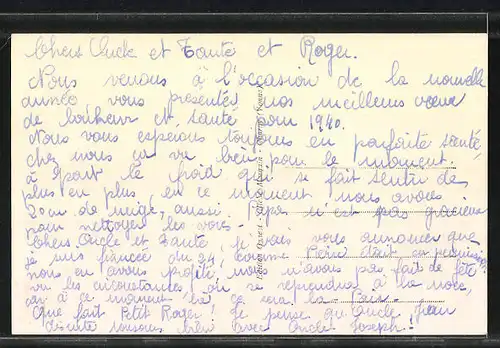 Chers Oncle et Tante et Roger.
Nous venons à l'occasion de la nouvelle
année vous présenter nos meilleurs vœux
de bonheur et santé pour 1940.
Nous vous espérons toujours en parfaite santé
chez nous ça va bien pour le moment.
à part le froid qui se fait sentir de
plus en plus en ce moment nous avons
de neige, aussi Papa n'est pas
pour nettoyer les
Chers Oncle et Tante je vais vous annoncer que
je suis fiancée du 24, comme était en permission
nous en avons profité, nous n'avons pas fait de fête
vu les circonstances on se reprendra à la noce,
car à ce moment là ce sera la Paix.
Que fait Petit Roger! je pense qu'Oncle Jean
toujours bien avec Oncle Joseph!